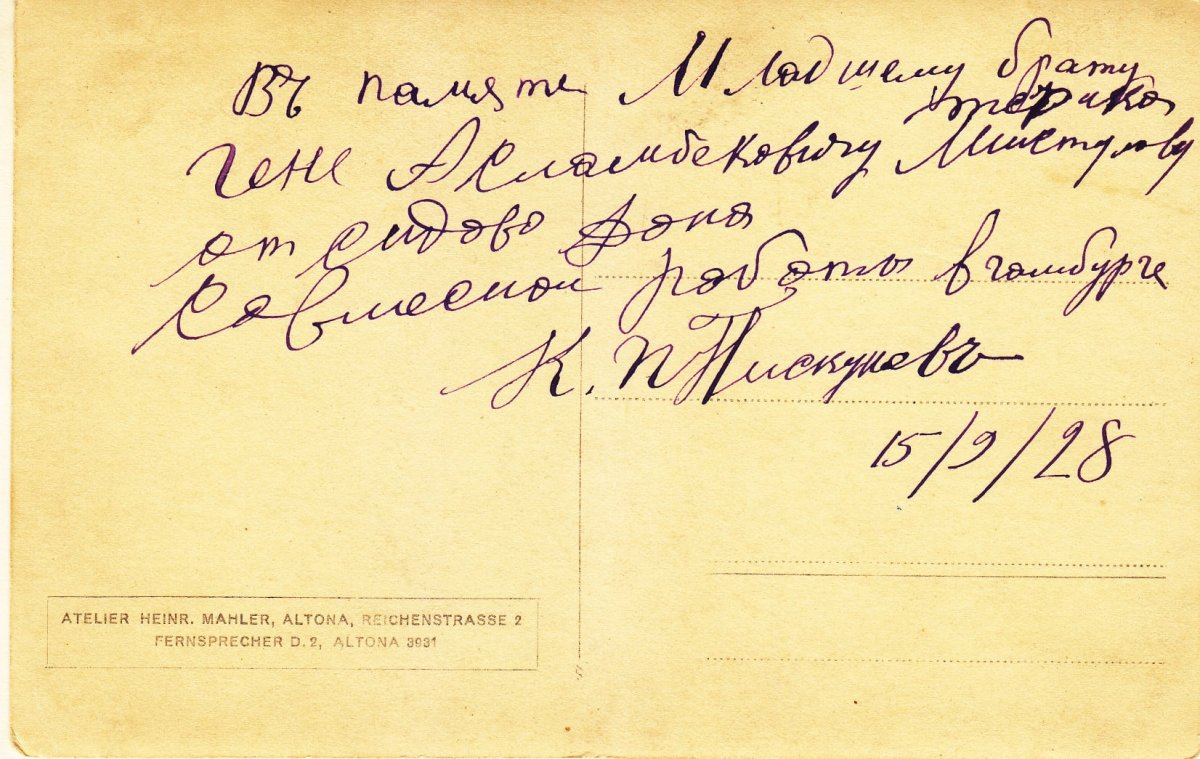 Въ памяте Младшему брату
терика
Гене Асламбековичу Мистулову
от сидово Дона
Савместной работы в гамбурге
К. П Пискуновъ
15/9/28
ATELIER HEINR. MAHLER, ALTONA, REICHENSTRASSE 2
FERNSPRECHER D. 2, ALTONA 3931